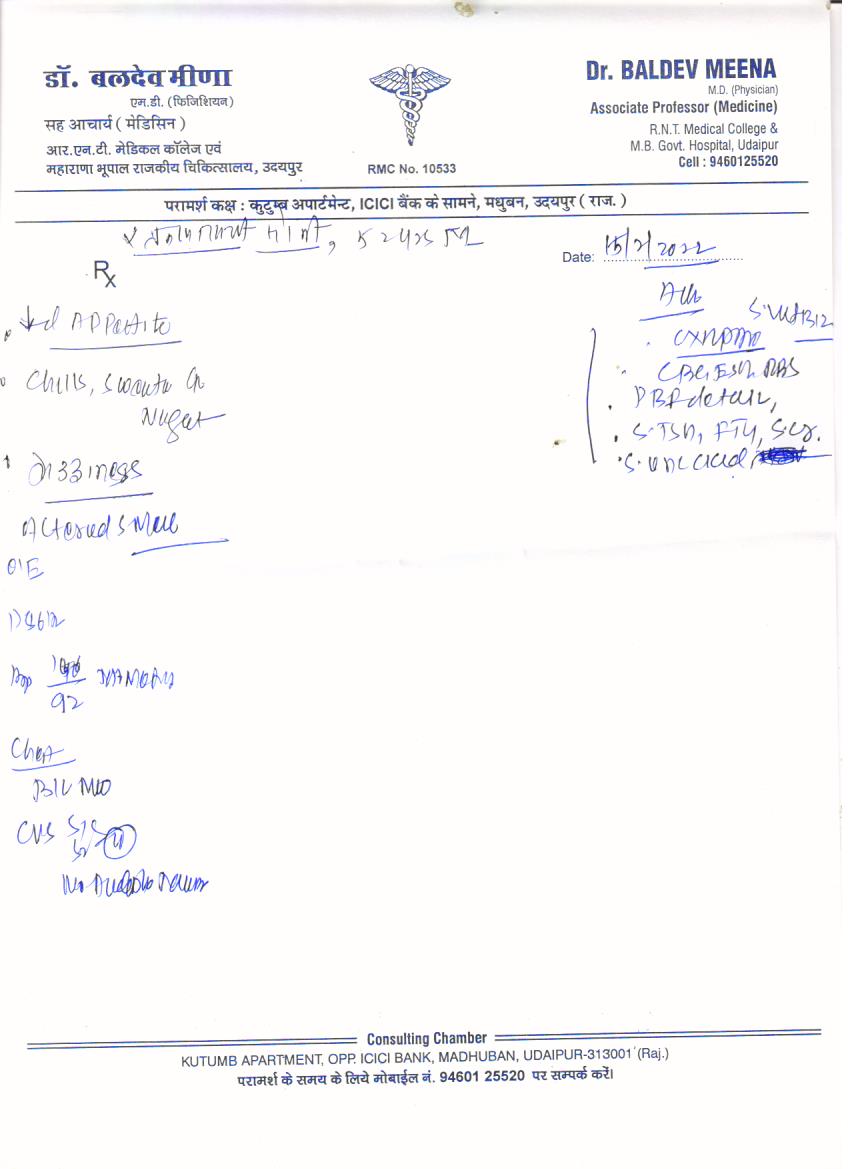 डॉ. बलदेव मीणा
एम.डी. (फिजिशियन)
सह आचार्य ( मेडिसिन )
आर.एन.टी. मेडिकल कॉलेज एवं
महाराणा भूपाल राजकीय चिकित्सालय, उदयपुर
RMC No. 10533
Dr. BALDEV MEENA
M.D. (Physician)
Associate Professor (Medicine)
R.N.T. Medical College &
M.B. Govt. Hospital, Udaipur
Cell : 9460125520
परामर्श कक्ष : कुटुम्ब अपार्टमेन्ट, ICICI बैंक के सामने, मधुबन, उदयपुर ( राज. )
Date: 15/2/2022
Rx
Adv
S.VitB12
CXR
CBC, ESR, RBS
PBF detail,
S.TSH, FT4, S.Cr.
S. uric acid,
Appetite
Chills,
Night
Dizziness
Altered smell
O/E
BP 92
Chest
B/L
CVS S1S2
No Audible
Consulting Chamber
KUTUMB APARTMENT, OPP. ICICI BANK, MADHUBAN, UDAIPUR-313001 (Raj.)
परामर्श के समय के लिये मोबाईल नं. 94601 25520 पर सम्पर्क करें।